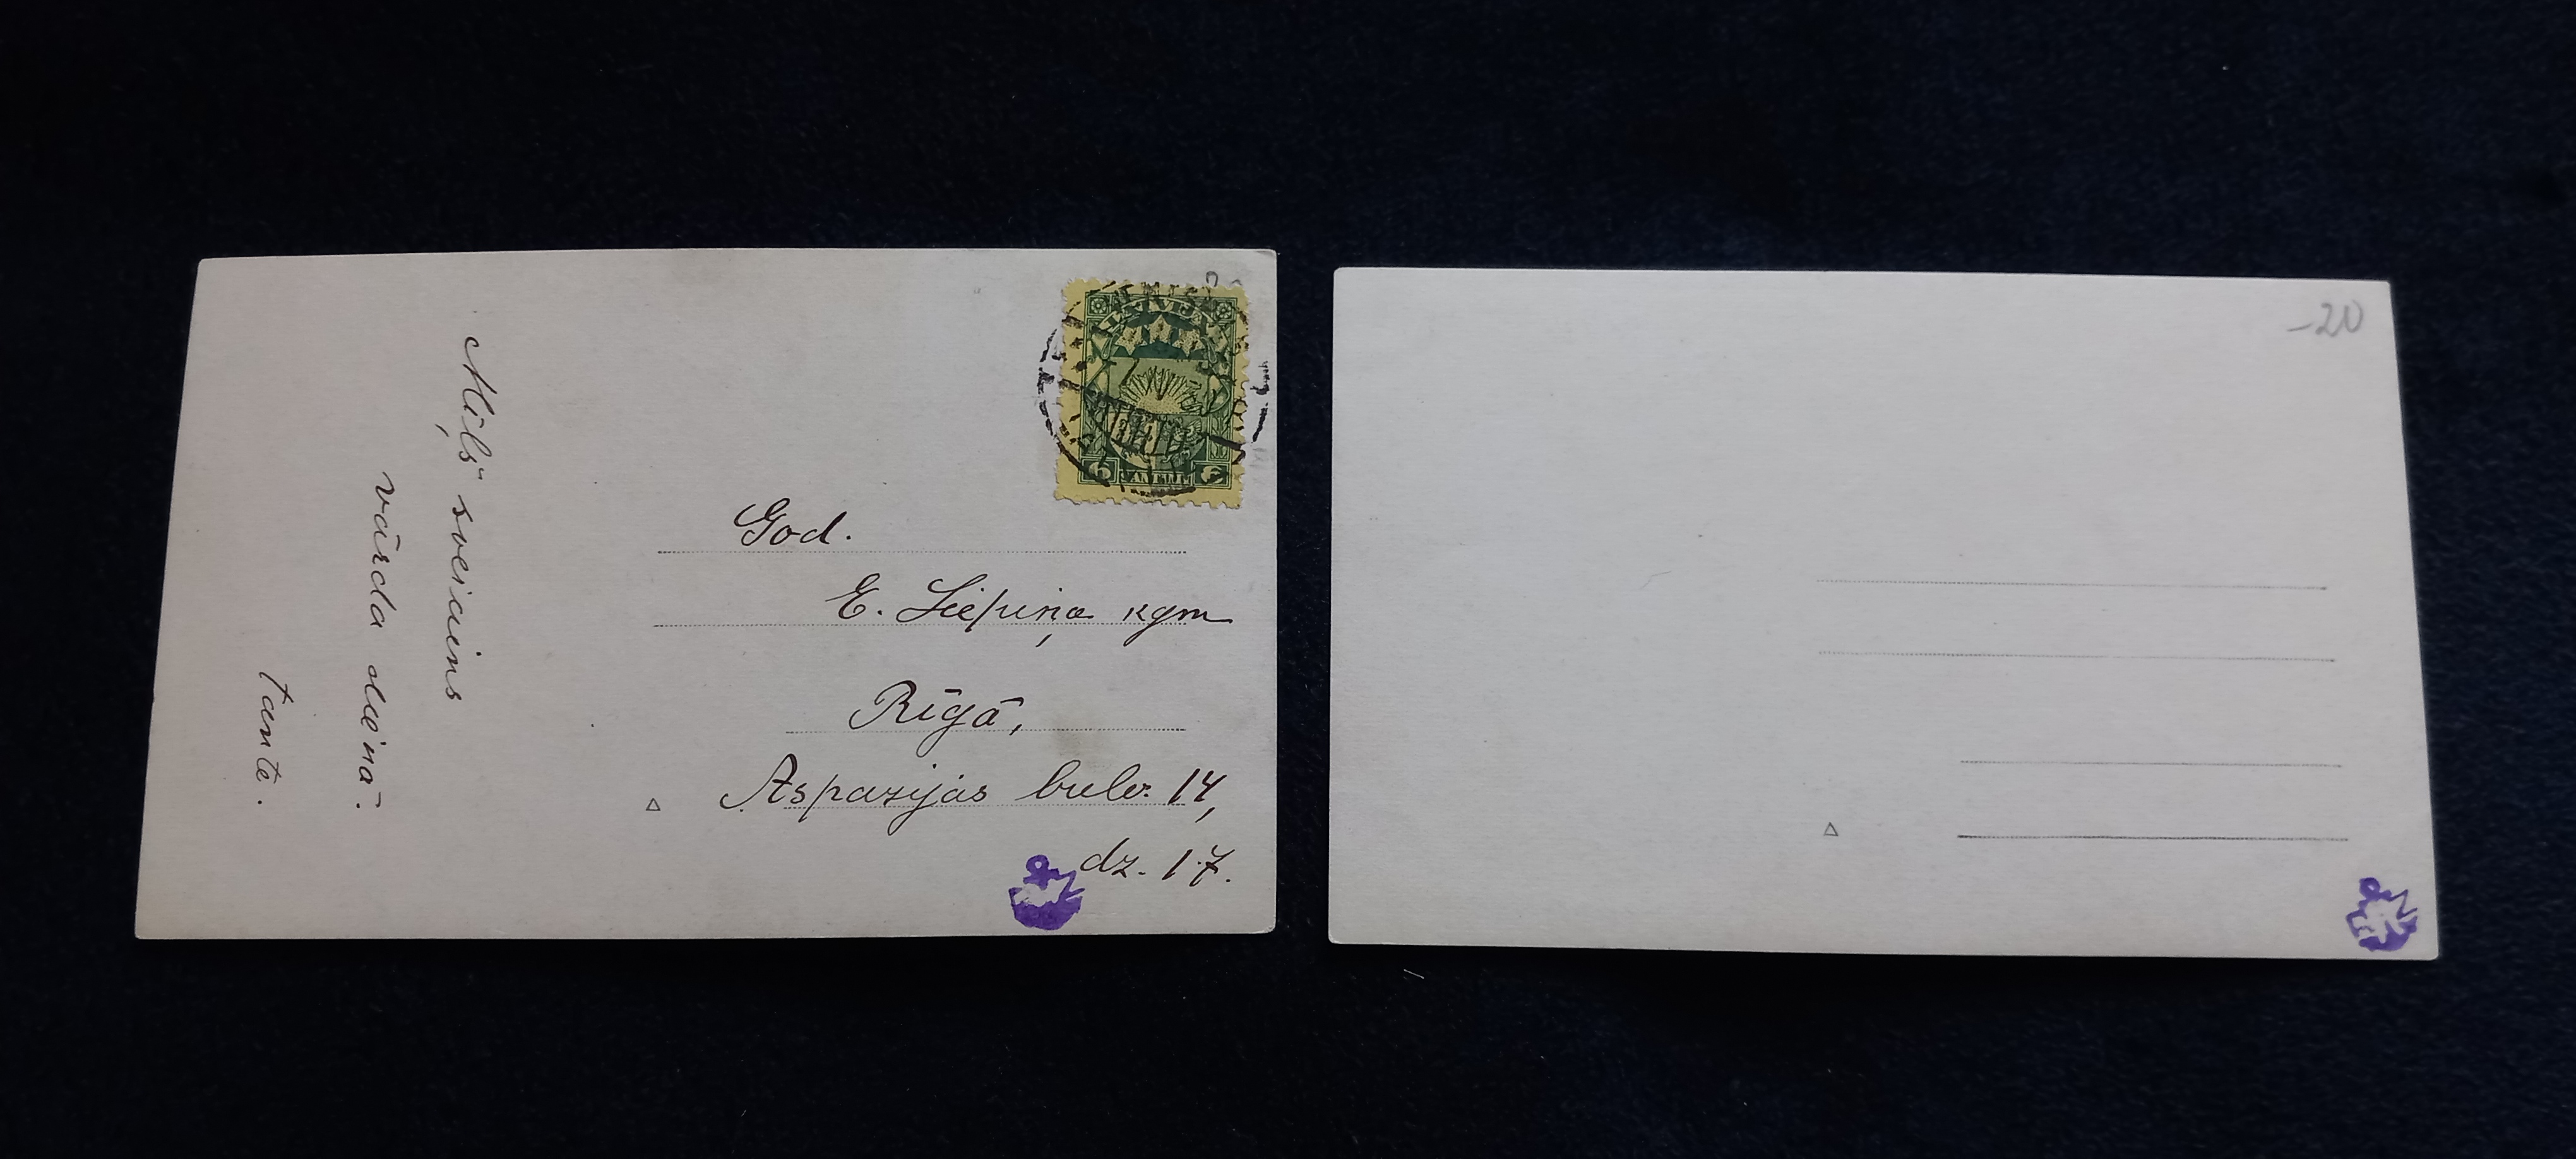 Mīļš sveiciens
vārda dienā.
tante.
LATVIJA
6 SANTIMI 6
God.
E. Liepiņa kgm
Rīgā,
Aspazijas bulv. 14,
dz. 17.
-20